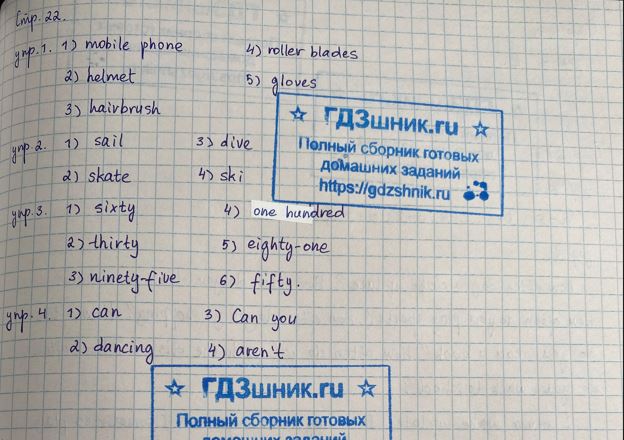 Стр. 22.
упр. 1. 1) mobile phone 4) roller blades
2) helmet 5) gloves
3) hairbrush
упр. 2. 1) sail 3) dive
2) skate 4) ski
упр. 3. 1) sixty 4) one hundred
2) thirty 5) eighty-one
3) ninety-five 6) fifty.
упр. 4. 1) can 3) Can you
2) dancing 4) aren't
ГДЗшник.ru
Полный сборник готовых
домашних заданий
https://gdzshnik.ru
ГДЗшник.ru
Полный сборник готовых
домашних заданий